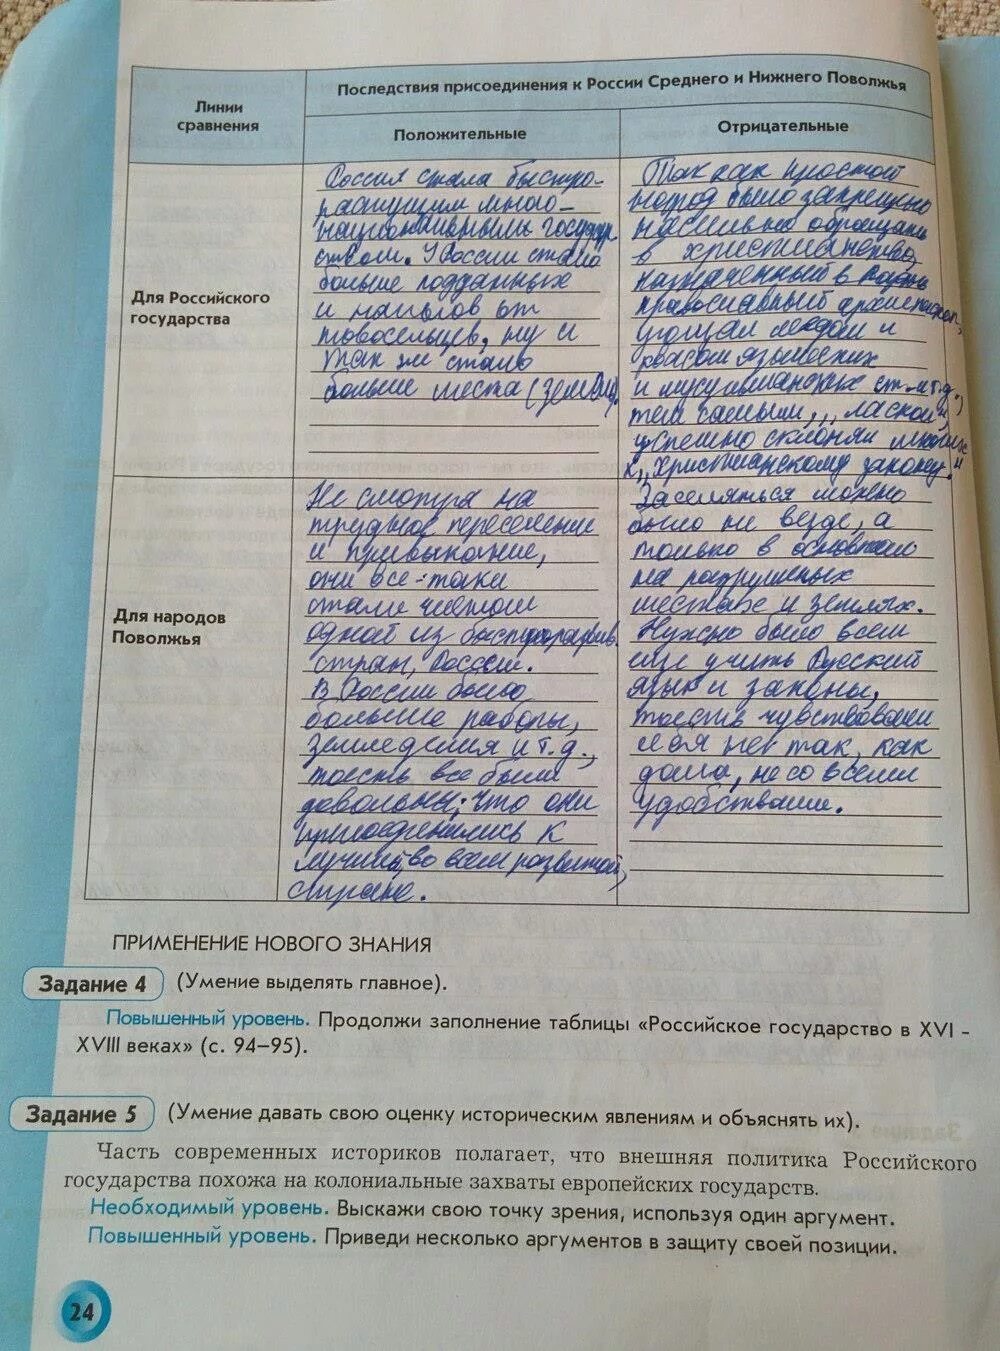 Линии
сравнения
Последствия присоединения к России Среднего и Нижнего Поволжья
Положительные
Отрицательные
Для Российского
государства
Россия стала быстро-
растущим много-
национальным государ
ством. У России стало
больше подданных
и налогов от
новосельцев, ну и
так же стало
больше места (земли).
Так как простой
народ было запрещено
насильно обращать
в христианство,
назначенный в
православный архиепископ,
угощал мёдом и
квасом языческих
и мусульманских ст. и т.д.
тем самым,,, лаской",
успешно склонял многих
к,, христианскому закону."
Для народов
Поволжья
Не смотря на
трудное переселение
и привыкание,
они все-таки
стали частью
одной из быстроразвив.
стран, России.
В России было
больше работы,
земледелия и т.д.,
тоесть все были
довольны, что они
присоединились к
лучшей, во всём развитой,
стране.
Заселяться можно
было не везде, а
только в основном
на разрушеных
местах и землях.
Нужно было всем
еще учить Русский
язык и законы,
тоесть чувствовали
себя не так, как
дома, не со всеми
удобствами.
ПРИМЕНЕНИЕ НОВОГО ЗНАНИЯ
Задание 4 (Умение выделять главное).
Повышенный уровень. Продолжи заполнение таблицы «Российское государство в XVI –
XVIII веках» (с. 94–95).
Задание 5 (Умение давать свою оценку историческим явлениям и объяснять их).
Часть современных историков полагает, что внешняя политика Российского
государства похожа на колониальные захваты европейских государств.
Необходимый уровень. Выскажи свою точку зрения, используя один аргумент.
Повышенный уровень. Приведи несколько аргументов в защиту своей позиции.
24